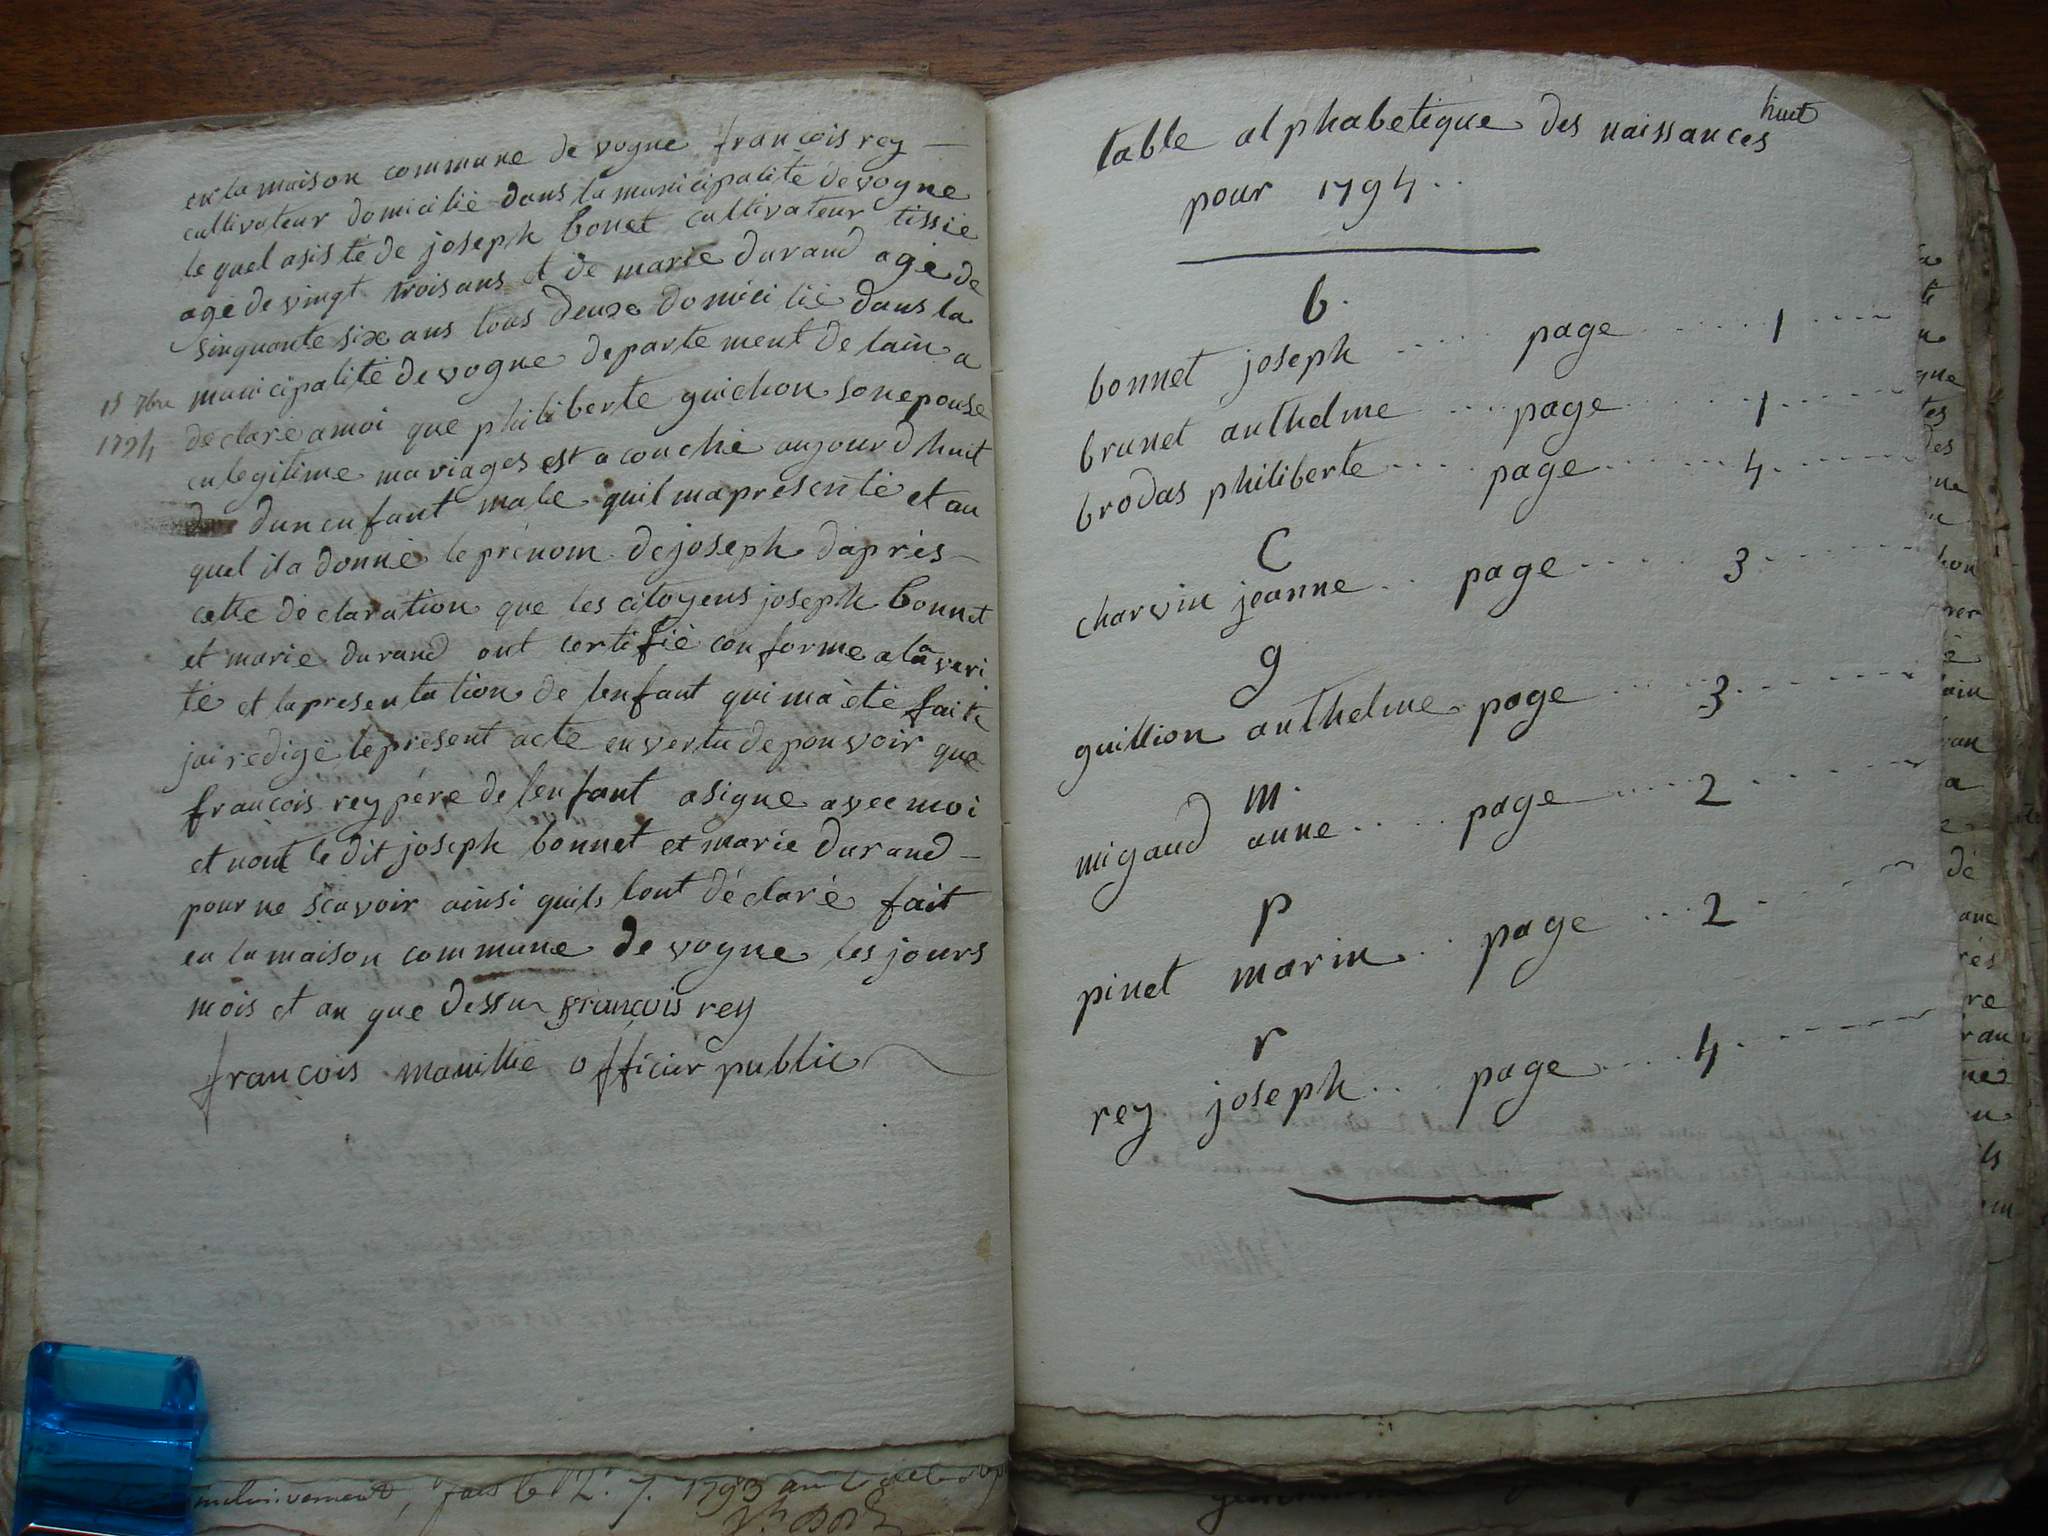 en la maison commune de vogne francois rey
cultivateur domicilié dans la municipalité de vogne
le quel asisté de joseph bonet cultivateur tissié
agé de vingt trois ans et de marie durand agé de
sinquante six ans tous deux domicilié dans la
municipalité de vogne departement de lain a
declaré a moi que philiberte guichon son epouse
en legitime mariages est acouché aujourd huit
dun enfant male quil ma presenté et au
quel il a donné le prénom de joseph daprès
cette declaration que les citoyens joseph bonnet
et marie durand ont certifié conforme a la veri
té et la presentation de lenfant qui ma été faite
jai redigé le present acte en vertu de pouvoir que
francois rey père de lenfant a signe avec moi
et nont le dit joseph bonnet et marie durand
pour ne scavoir ainsi quils lont déclaré fait
en la maison commune de vogne les jours
mois et an que dessu francois rey
francois mauillie officier public
15 7bre
1794
1793
huit
table alphabetique des naissances
pour 1794
b.
bonnet joseph .... page ..... 1 ....
brunet anthelme ... page ..... 1 .....
brodas philiberte .... page ..... 4 .....
C
charvin jeanne .. page ..... 3 ......
g
guillion anthelme page .... 3 ......
m.
migaud anne .... page .... 2 ......
p
pinet marin . page ... 2 .....
r
rey joseph .. page .... 4 ......